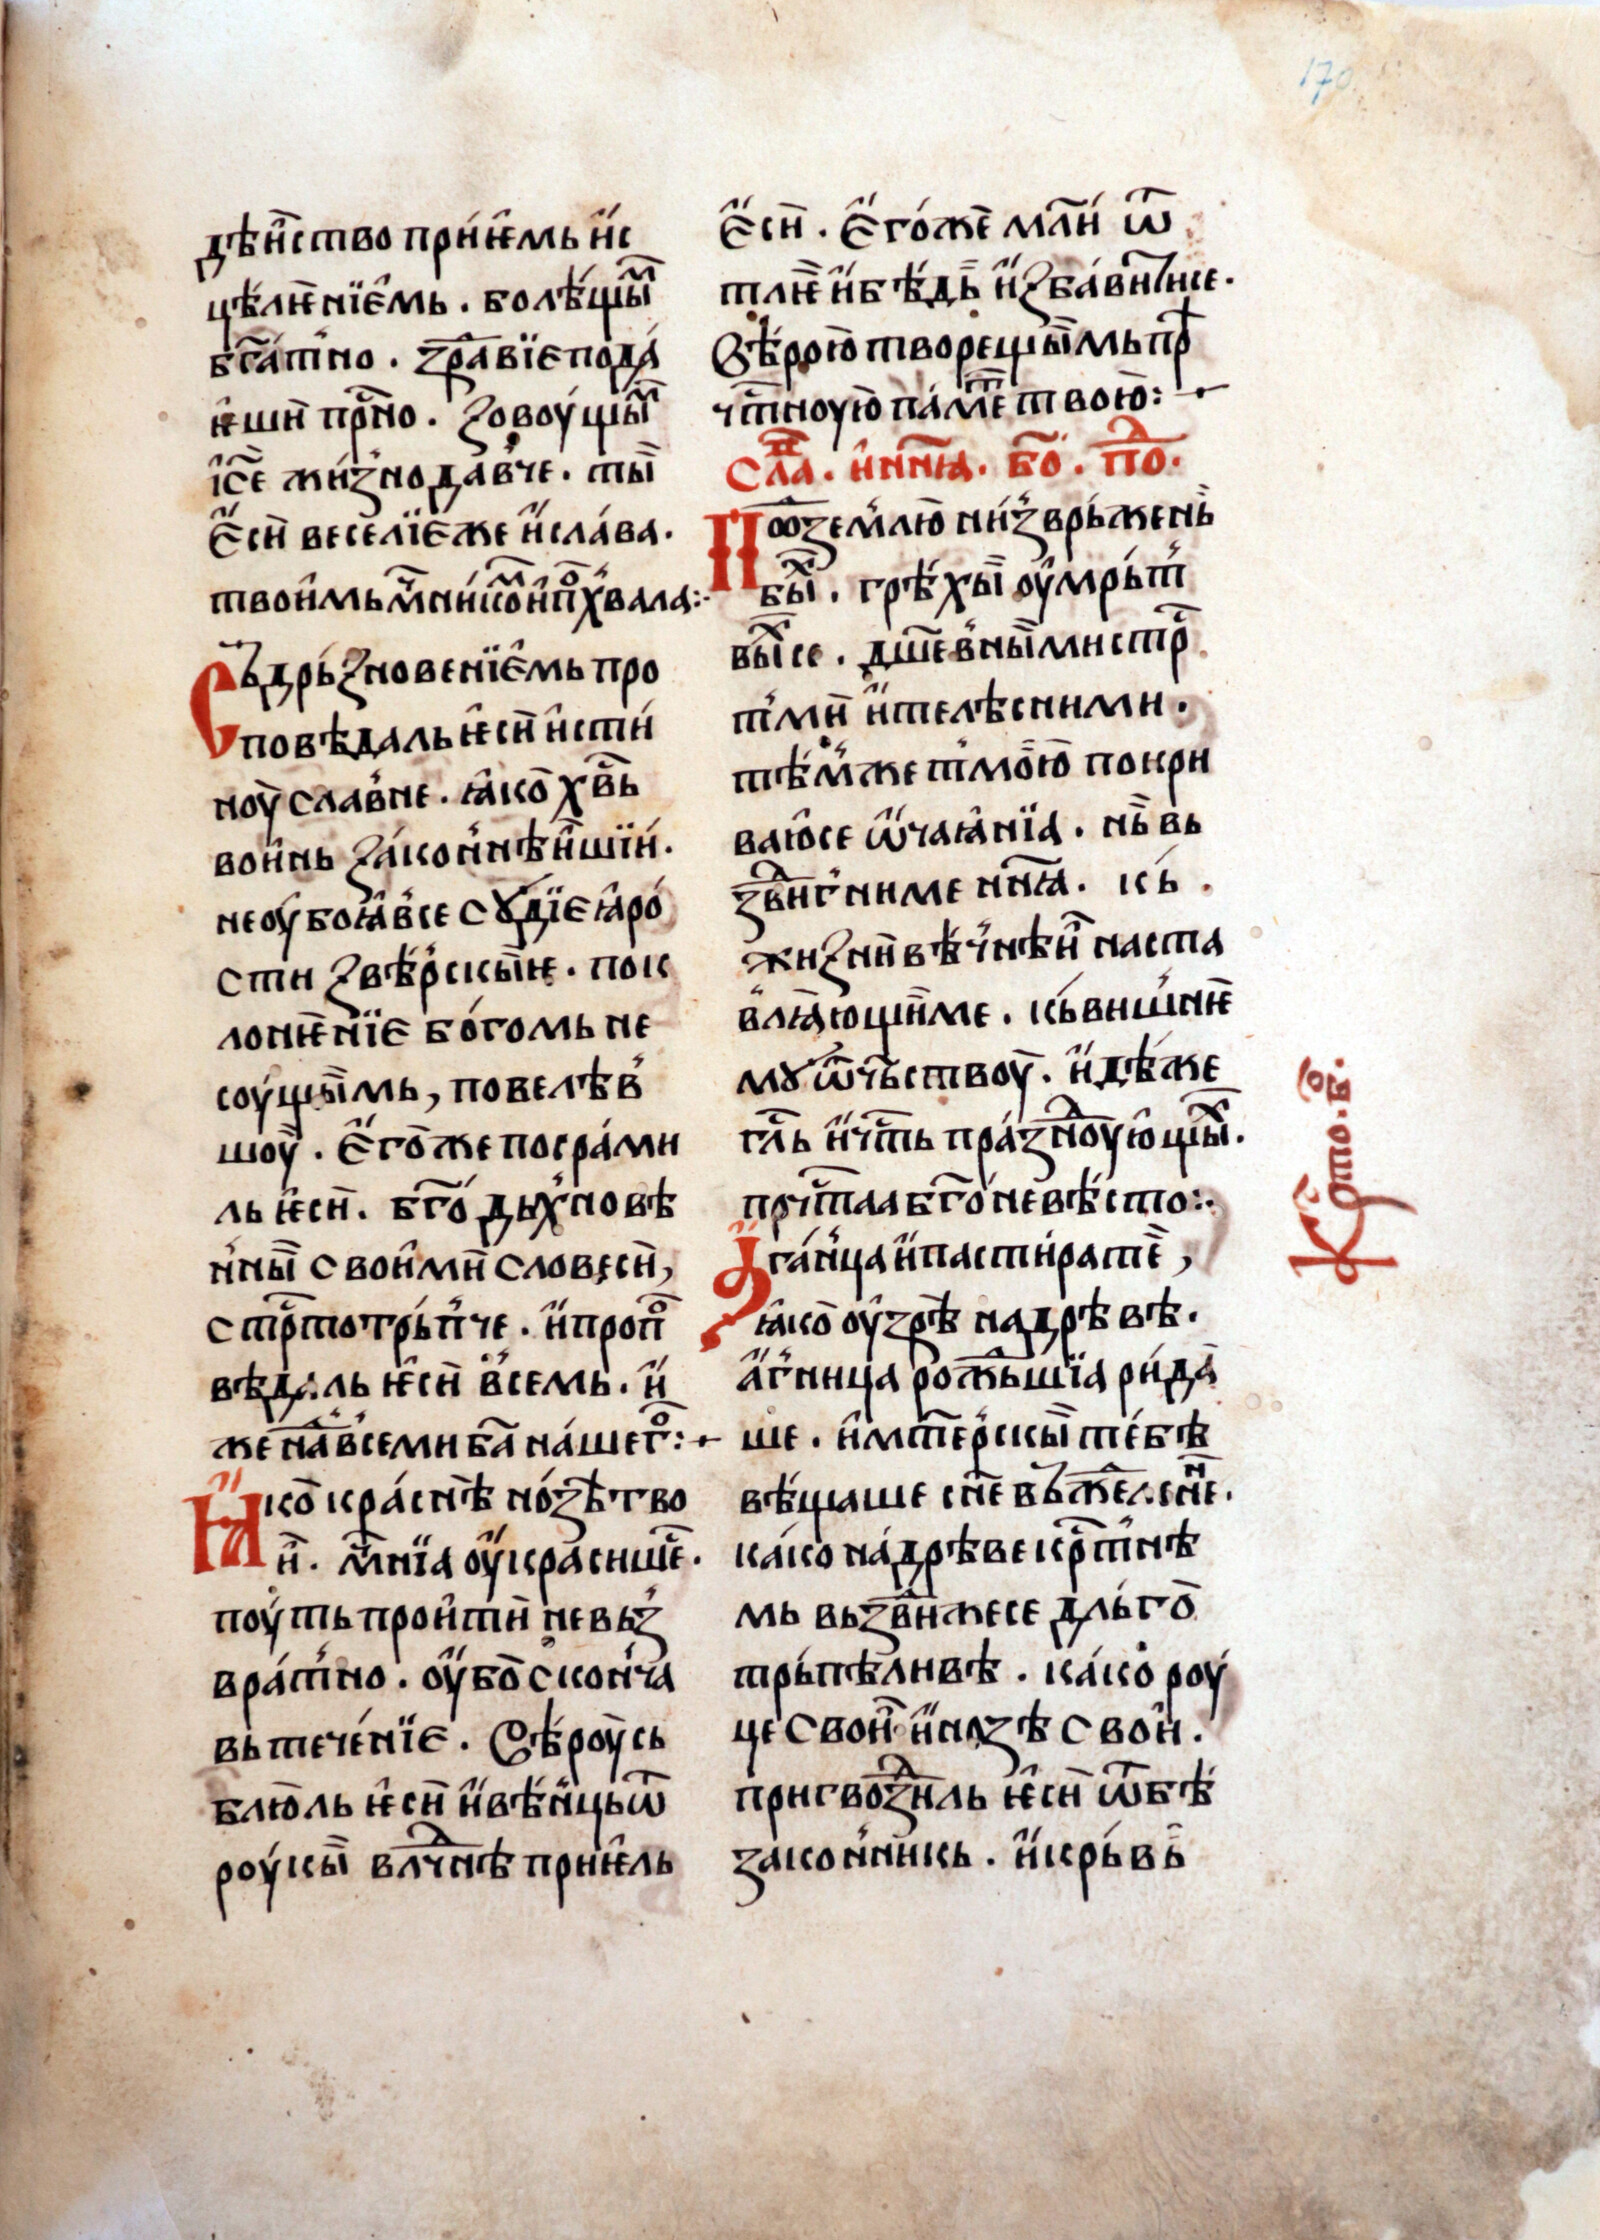 170
дѣи҆ство прїи́ѥмь и҆с
цѣлѥ́нїемь. болѣ́щыⷨ
бг҃а́тно. здра́вїе пода́
ѥши прⷭ҇но. зовоу́щыⷨ
і҆с҃е жи́знодавче. ты̀
є҆сѝ веселїе же и҆ сла́ва.
твои҆мь мⷱ҇нико̑ⷨ и҆ пⷪ҇хвала:·
Съ дрьзновенїе́мь про
повѣдаль ѥ҆сѝ и҆сти́
ноу̀ славне. ꙗ҆ко̀ хв҃ь
вои́нь зако́ннѣи҆шїи.
не оу҆боꙗ́все сꙋдїе ꙗ҆ро́
сти звѣ́рскыѥ. пок
лонѥ́нїе бо́гомь не
соу́щыимь, повелѣв
шоу̀. є҆го́же посра́ми
ль ѥ҆сѝ. бг҃о́дьхнове
нны̀ свои́ми словесѝ,
стрⷭ҇тотрьпче. и҆ пропⷪ҇
вѣдаль ѥ҆сѝ всемь. и҆
же на́дь всеми ба҃ на́шегⷪ҇:·
Ꙗ҆ко̀ кра́снѣ но́зѣ тво
и҆. мⷱ҇нїа оу҆красише.
поу́ть прои҆тѝ невьз
вра́тно. оу҆бо̀ сконча
вь тече́нїе. вѣ́роу сь
блю́ль ѥ҆сѝ и҆ вѣ́нць ѿ
роу́кы влⷣчнѣ прїѥль
є҆сѝ. є҆го́же молѝ ѿ
тлѥ̀ и҆ бѣ́дь и҆зба́витисе.
вѣ́рою творещыимь прⷣ
чⷭ҇тноую па́меть твою̀:·
Слⷡ҇а. и҆ нн҃ꙗ. бо҃. по́ⷣ.
По́дь землю̀ ни́звръженъ
быⷯ. грѣ́хы оу҆мрьт
выⷯсе. дш҃евными стрⷭ҇
тмѝ и҆ телѣсними.
тѣ́мже тмо́ю покри
ваюсе ѿчаꙗ́нїа. нь̀ вь
здви́гни ме нн҃ꙗ. кь́.
жизни вѣ́чнѣи наста
влꙗ́ющи ме. кь́ вишнѥ
мꙋ ѿчьствоу. и҆дѣ́же
гла́сь и҆ чⷭ҇ть пра́здноую́щыⷯ.
прѣчⷭ҇таа бг҃о́невѣ́сто:·
Ꙗ҆га́нца и҆ пасти́ра те,
ꙗ҆ко̀ оу҆зрѣ̀ на дрѣвѣ.
а҆́гница рождьшїа рида́
ше. и҆ мт҃ерскы̀ те́бѣ
вѣ́щаше сн҃е вьжделенне.
ка́ко на́ дрѣве крⷭ҇тнѣ
мь вьздви́жесе дль́го
трьпѣливѣ. ка́ко роу́
це свои҆ и҆ нозѣ свои.
пригвозди́ль ѥ҆сѝ ѿ бѣ
законникь. и҆ крь́вь
Крⷭ҇то. бо҃.